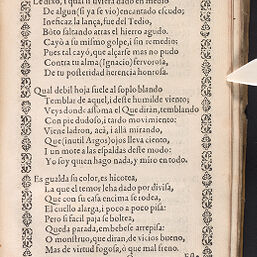 Le dixo, i qual si uviera dado en medio
De algun (si ya se vio) encantado escudo;
Ineficaz la lança, fue del Tedio,
Boto saltando atras el hierro agudo.
Cayò a su mismo golpe, i sin remedio;
Pues tal cayò, que alçarse mas no pudo
Contra tu alma (Ignacio) fervorosa,
De tu posteridad herencia honrosa.
Qual debil hoja suele al soplo blando
Temblar de aquel, i deste humilde viento;
Veys donde assoma el Que diràn, temblando
Con pie dudoso, i tardo movimiento:
Viene ladron, acà, i allà mirando,
Que (inutil Argos) ojos lleva ciento,
I un mote a las espaldas deste modo:
Yo soy quien hago nada, y miro en todo.
Es gualda su color, es hicotea,
La que el temor le ha dado por divisa,
Que con su casa encima se rodea,
El cuello alarga, i poco a poco pisa:
Pero si facil paja se boltea,
Queda parada, em bebele arrepisa:
O monstruo, que diran, de vicios bueno,
Mas de virtud fogosa, ò que mal sieno.